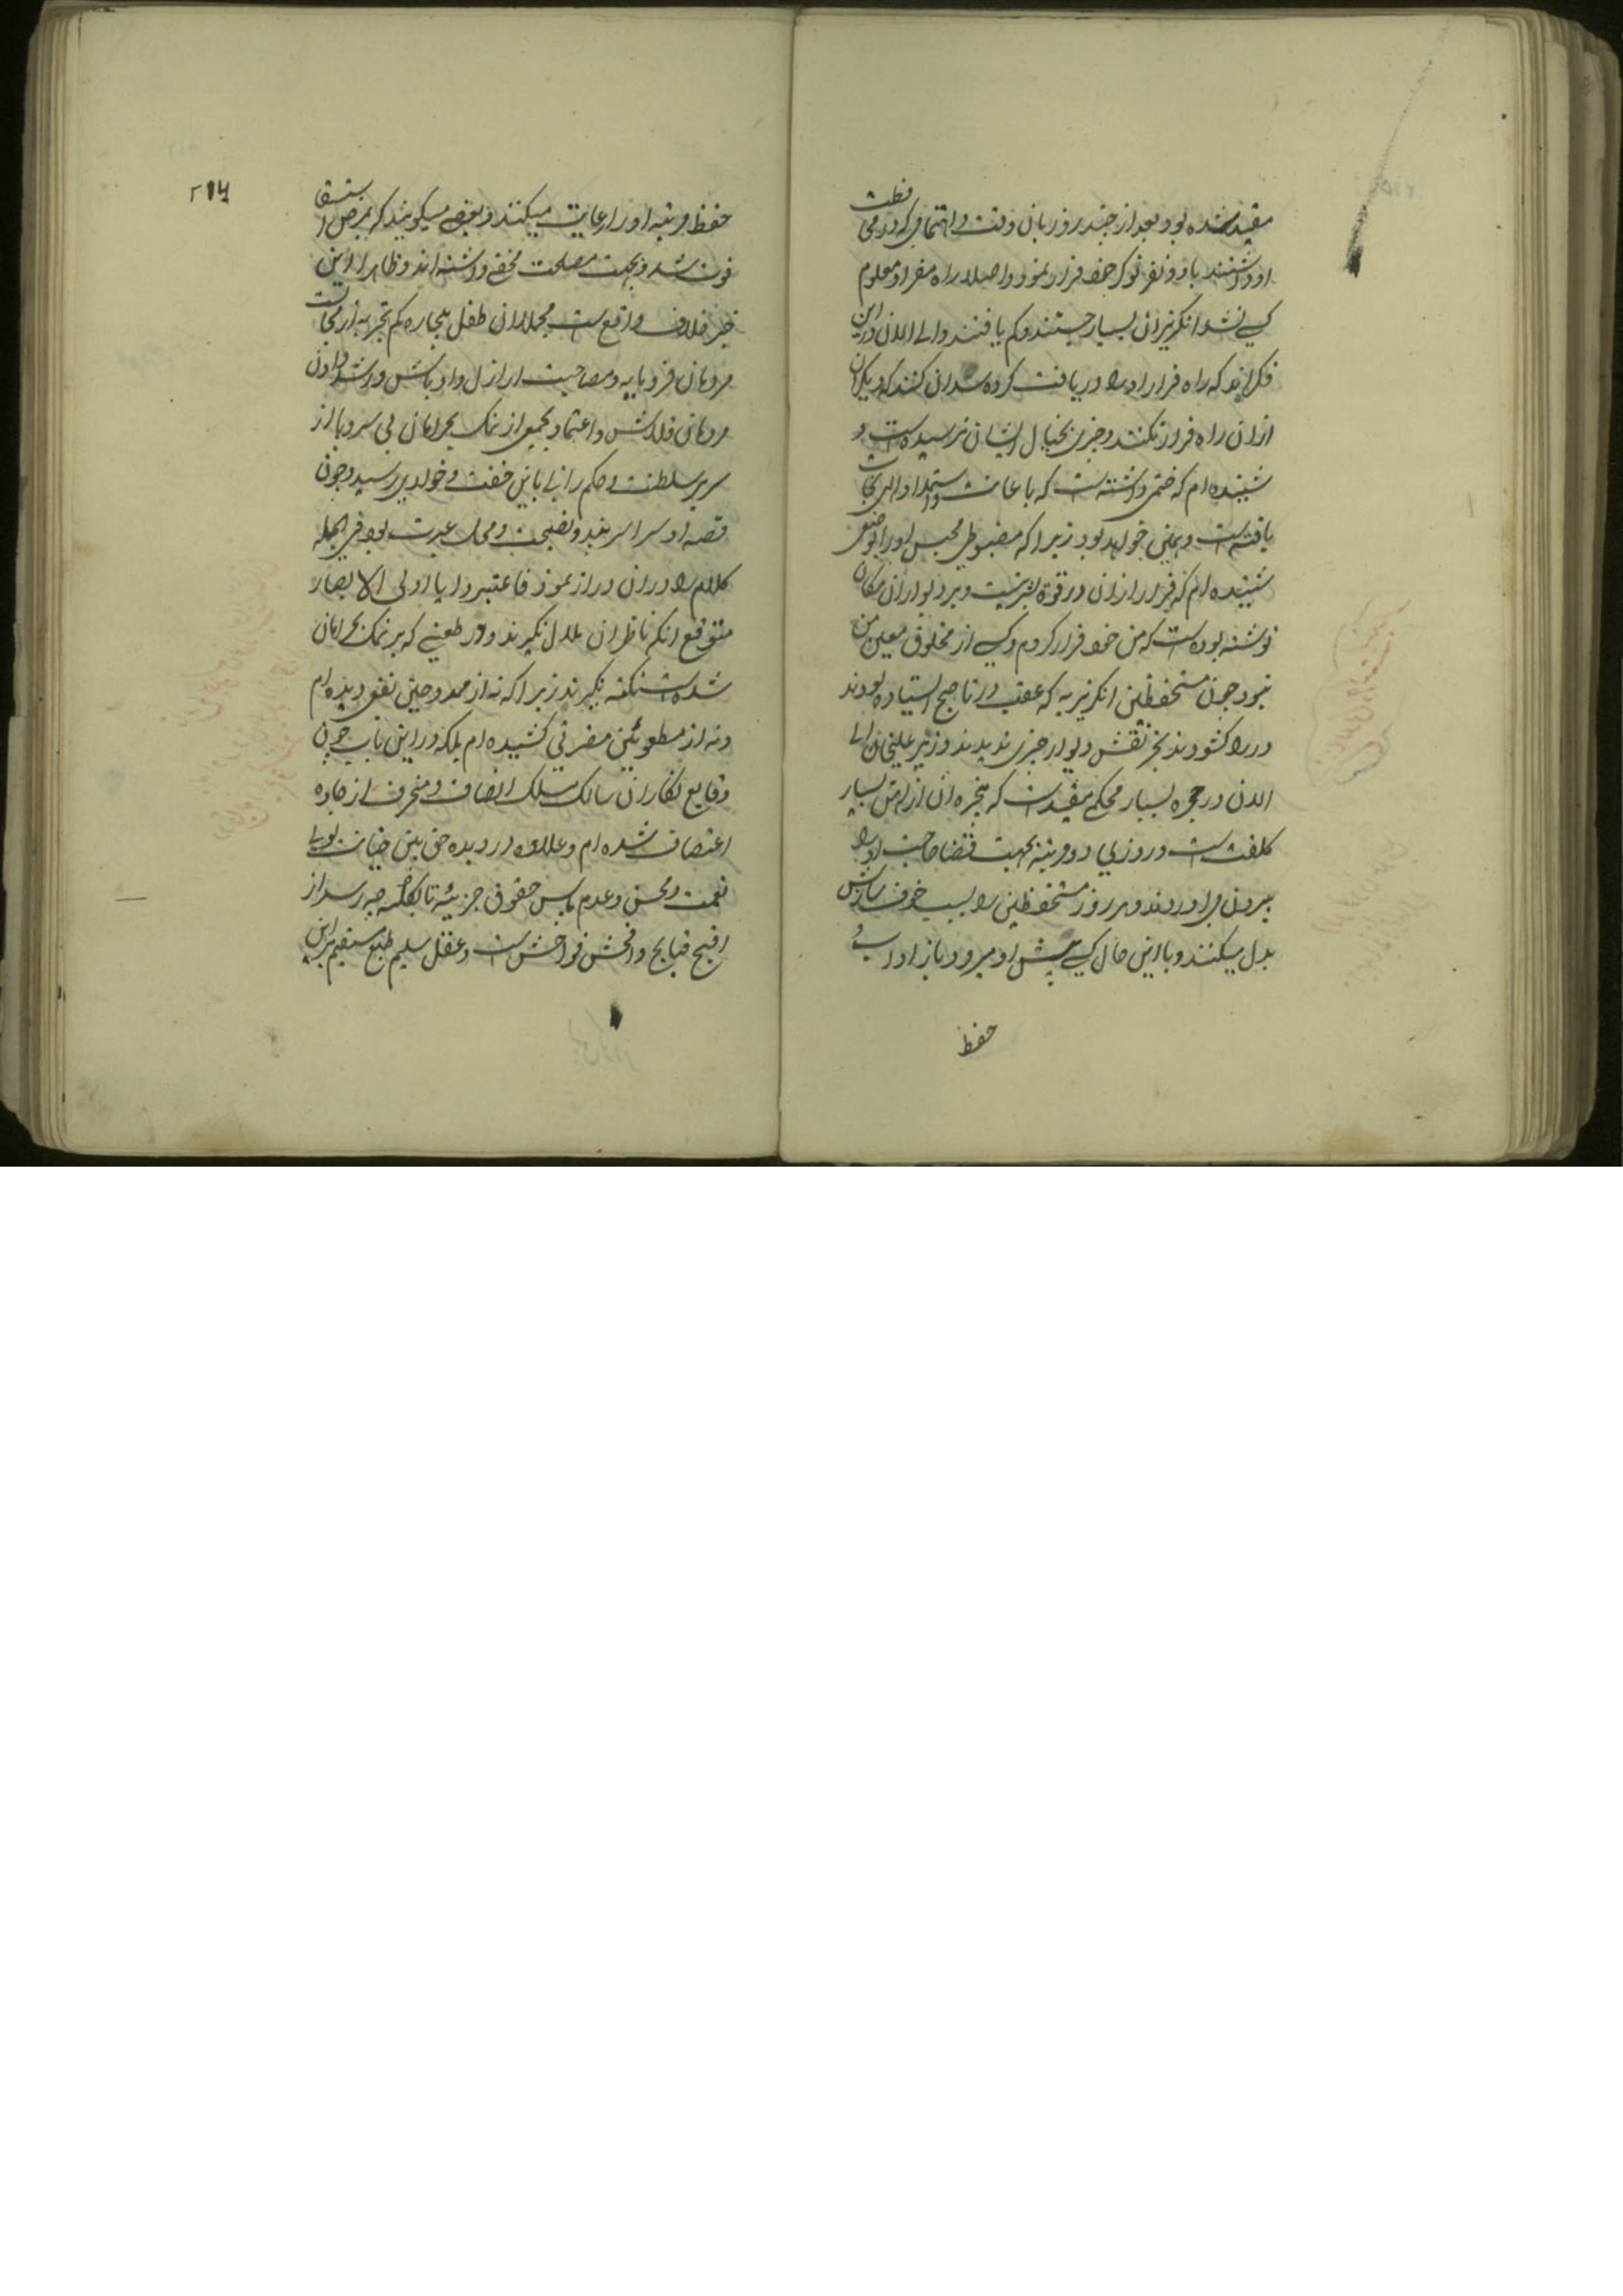 مقید شده بود بعد از چند روز بان دقت و اهتمامی که در محافظت
او داشتند با دو نفر نوکر خود فرار نمود و اصلا راه مفر او معلوم
کسی نشد انگریزان بسیار جستند و کم یافتند و الی الان در این
فکراند که راه فرار او را دریافت کرده سد ان کنند که دیگران
ازان راه فرار نکنند و چیزی بخیال ایشان نرسیده است و
شنیده ام که ختمی داشته است که باعانت و استمداد او الهی نجات
یافته است و همین خواهد بود زیرا که مضبوطی محبس او را بوضعی
شنیده ام که فرار ازان در قوة بشر نیست و بر دیوار ان مکان
نوشته بوده است که من خود فرار کردم و کسی از مخلوق معین من
نبود چون مستحفظین انگریزیه که عقب در تا صبح استاده بودند
در را کشودند بجز نقش دیوار چیزی ندیدند وزیر علیخان الی
الان در حجره بسیار محکم مقید است که پنجره ان از اهن بسیار
کلفت است و روزی دو مرتبه بجهت قضا حاجت او را
بیرون می اورند و هر روز مستحفظین را بسبب خوف سازش
بدل میکنند و با این حال کسی پیش او میرود باز اداب و
حفظ
۲۱۶
حفظ مرتبه او را رعایت میکنند و بعضی میگویند که بمرض استسقا
فوت شد و بجهت مصلحت مخفی داشته اند و ظاهرا این
خبر خلاف واقع است مجملا ان طفل بیچاره کم تجربه از مجالست
مردمان فرومایه و مصاحبت اراذل و اوباش و رشد دادن
مردمان قلاش و اعتماد بجمعی از نمک بحرامان بی سر و پا از
سریر سلطنت و حکم رانی باین خفت و خواری رسید و چون
قصه او سراسر پند و نصیحت و محل عبرت بود فی الجمله
کلام را دران دراز نمود فاعتبروا یا اولی الابصار
متوقع انکه ناظران ملال نگیرند و در طعنی که بر نمک بحرامان
شده است نکته نگیرند زیرا که نه از ممدوحین نفعی دیده ام
و نه از مطعونین مضرتی کشیده ام بلکه در این باب چون
وقایع نگاران سالک مسلک انصاف و منحرف از جاده
اعتصاف شده ام و علاوه در دیده حق بین خیانت بولی
نعمت و محسن و عدم پاس حقوق جزیئه تا بکلیه چه رسد از
اقبح قبایح و افحش فواحش است و عقل سلیم و طبع مستقیم بر این